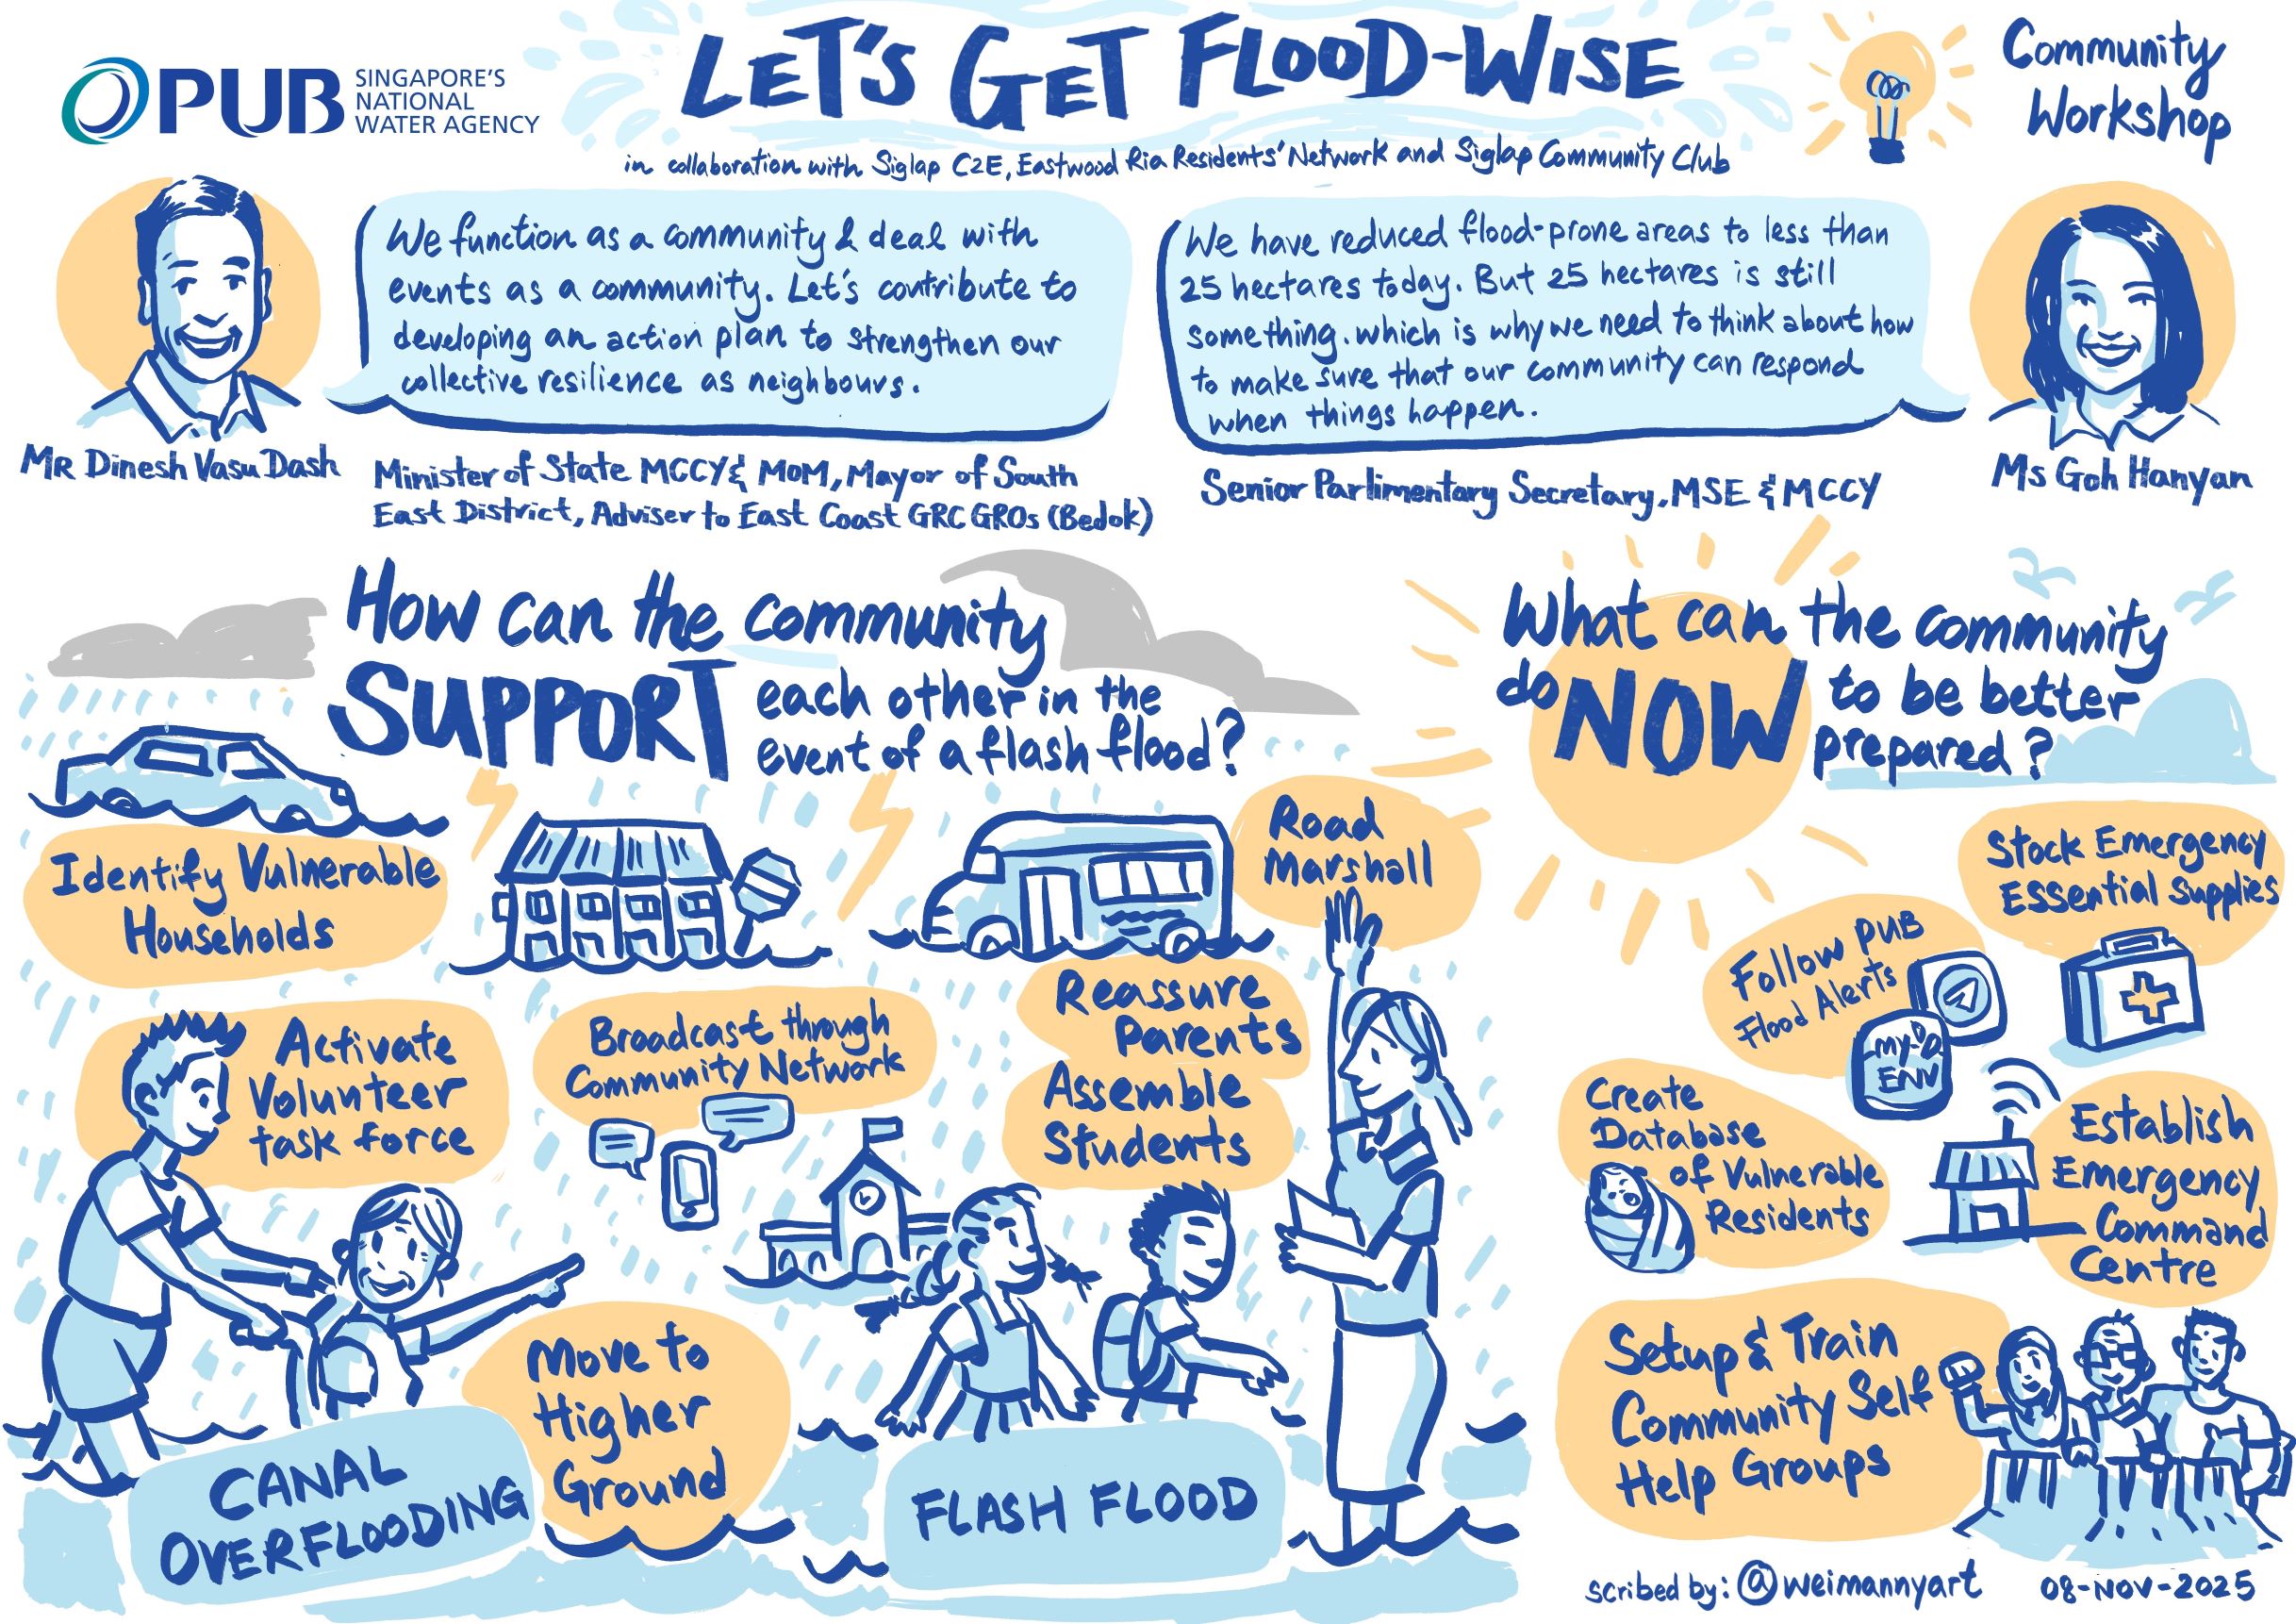 PUB
SINGAPORE'S
NATIONAL
WATER AGENCY
LET'S GET FLOOD-WISE
in collaboration with Siglap C2E, Eastwood Ria Residents' Network and Siglap Community Club
Community
Workshop
We function as a community & deal with
events as a community. Let's contribute to
developing an action plan to strengthen our
collective resilience as neighbours.
Mr Dinesh Vasu Dash
Minister of State MCCY & MOM, Mayor of South
East District, Adviser to East Coast GRC GROs (Bedok)
We have reduced flood-prone areas to less than
25 hectares today. But 25 hectares is still
something. which is why we need to think about how
to make sure that our community can respond
when things happen.
Senior Parlimentary Secretary, MSE & MCCY
Ms Goh Hanyan
How can the community
SUPPORT each other in the
event of a flash flood?
Identify Vulnerable
Households
Road
Marshall
Activate
Volunteer
task force
Broadcast through
Community Network
Reassure
Parents
Assemble
Students
Move to
Higher
Ground
CANAL
OVERFLOODING
FLASH FLOOD
What can the community
do NOW to be better
prepared?
Stock Emergency
Essential Supplies
Follow PUB
Flood Alerts
my
ENV
Create
Database
of Vulnerable
Residents
Establish
Emergency
Command
Centre
Setup & Train
Community Self
Help Groups
scribed by: @weimannyart
08-NOV-2025